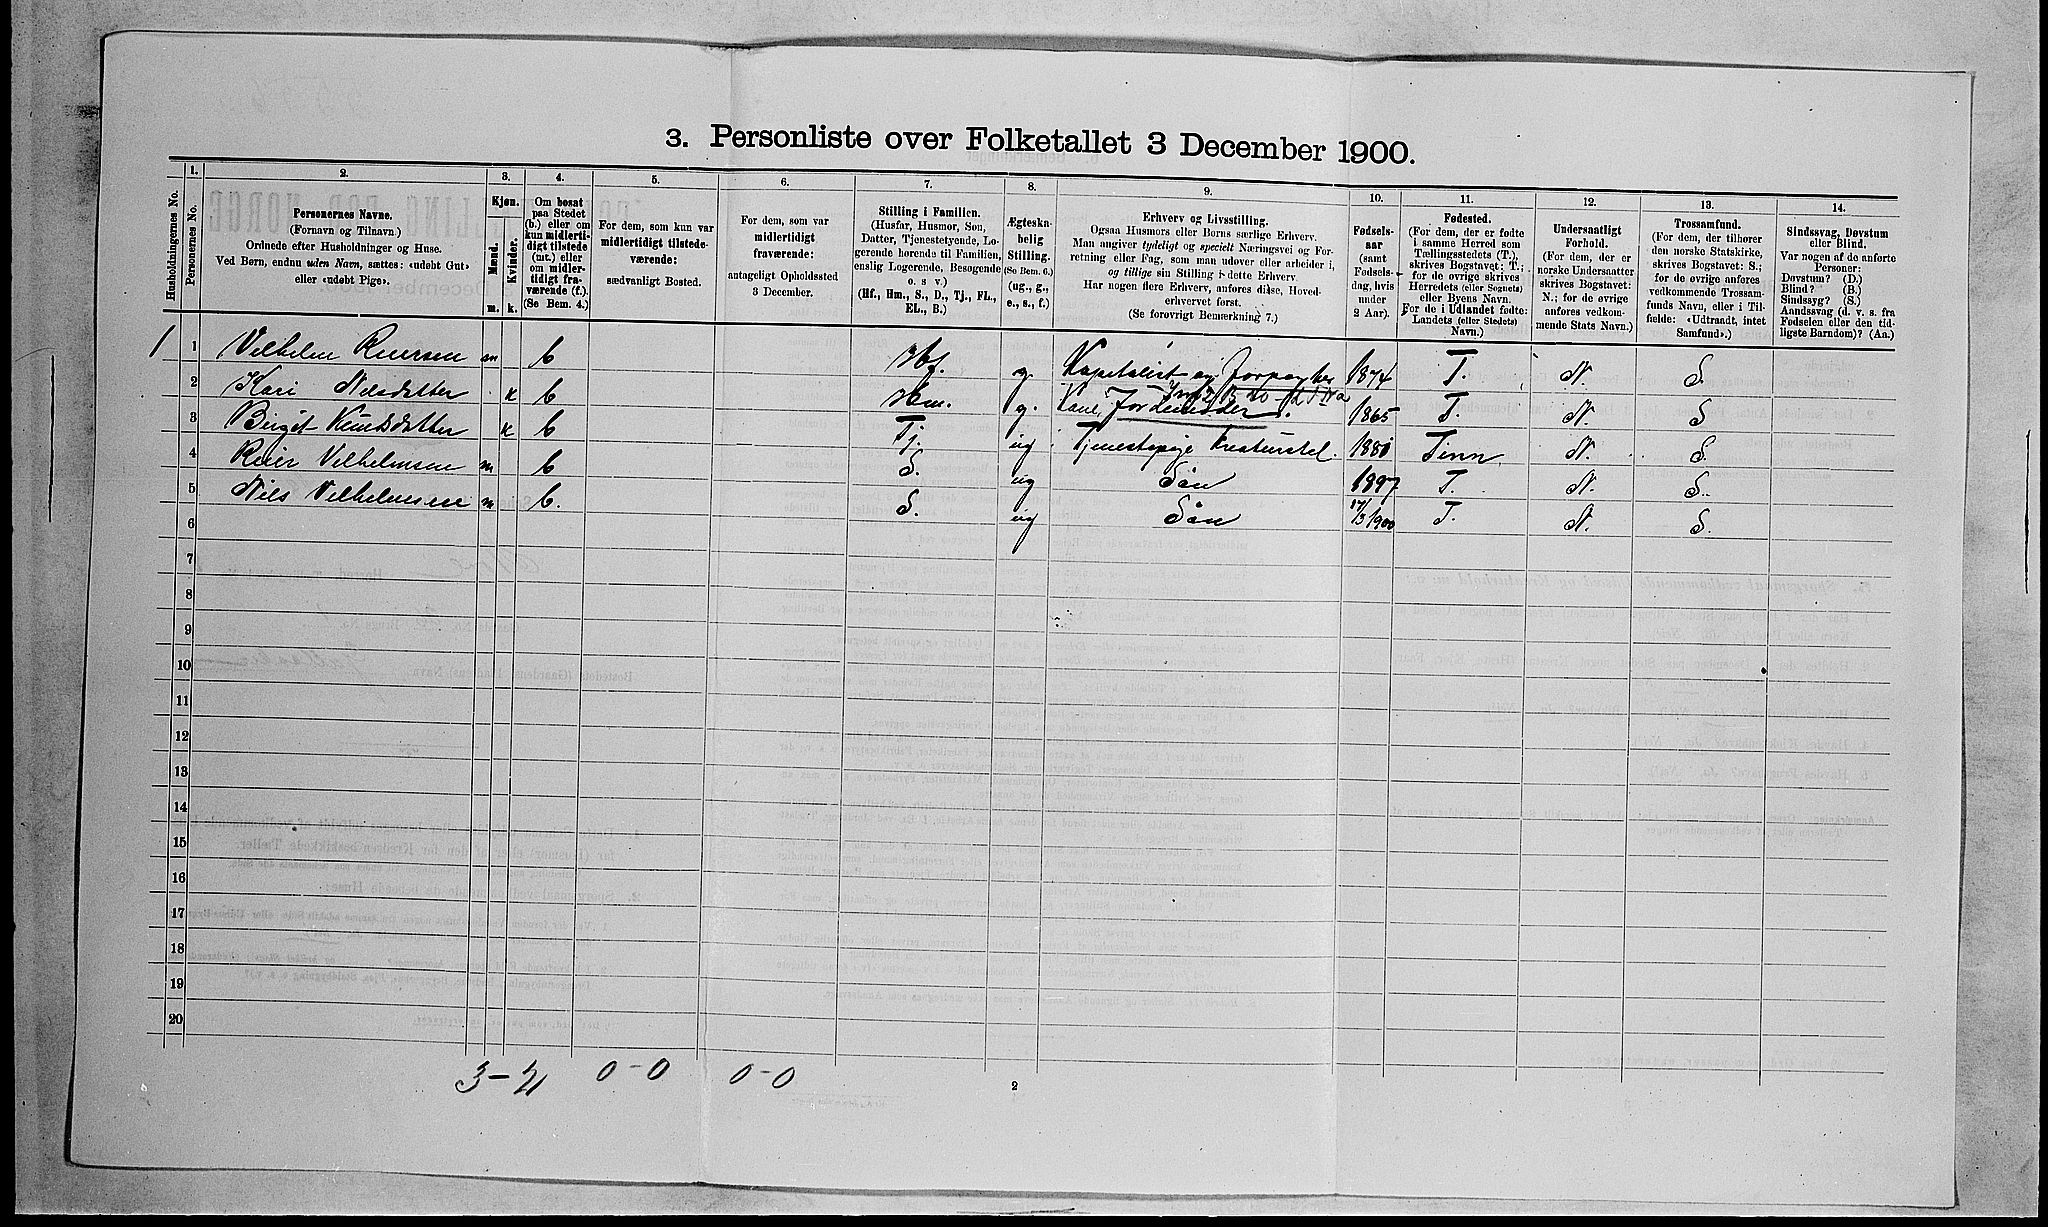 3. Personliste over Folketallet 3 December 1900.
Husholdningernes No.
1. Personernes No.
2. Personernes Navne.
(Fornavn og Tilnavn.)
Ordnede efter Husholdninger og Huse.
Ved Børn, endnu uden Navn, sættes: «udøbt Gut»
eller «udøbt Pige».
3. Kjøn.
Mænd. Kvinder.
m. k.
4. Om bosat
paa Stedet
(b.) eller om
kun midlerti-
digt tilstede
(mt.) eller
om midler-
tidigt fra-
værende (f.).
(Se Bem. 4.)
5. For dem, som kun var
midlertidigt tilstede-
værende:
sædvanligt Bosted.
6. For dem, som var
midlertidigt
fraværende:
antageligt Opholdssted
3 December.
7. Stilling i Familien.
(Husfar, Husmor, Søn,
Datter, Tjenestetyende, Lo-
gerende hørende til Familien,
enslig Logerende, Besøgende
o. s v.)
(Hf., Hm., S., D., Tj., FL.,
EL., B.)
8. Ægteskn-
belig
Stilling.
(Se Bem. 6.)
(ug., g.,
e., s., f.)
9. Erhverv og Livsstilling.
Ogsaa Husmors eller Børns særlige Erhverv.
Man angiver tydeligt og specielt Næringsvei og For-
retning eller Fag, som man udover eller arbeider i,
og tillige sin Stilling i dette Erhverv.
Har nogen flere Erhverv, anføres disse, Hoved-
erhvervet først.
(Se forøvrigt Bemærkning 7.)
10. Fødsels-
aar
(samt
Fødsels-
dag, hvis
under
2 Aar).
11. Fødested.
(For dem, der er fødte
i samme Herred som
Tællingsstedets (T.),
skrives Bogstavet: T.;
for de øvrige skrives
Herredets (eller Sognets)
eller Byens Navn.
For de i Udlandet fødte:
Landets (eller Stedets)
Navn.)
12. Undersaatligt
Forhold.
(For dem, der er
norske Undersaatter
skrives Bogstavet:
N.; for de øvrige
anføres vedkom-
mende Stats Navn.)
13. Trossamfund.
(For dem, der tilhører
den norske Statskirke,
skrives Bogstavet: S.;
for de øvrige anføres
vedkommende Trossam-
funds Navn, eller i Til-
fælde: «Udtraadt, intet
Samfund».)
14. Sindssvag, Døvstum
eller Blind.
Var nogen af de anførte
Personer:
Døvstum? (D.)
Blind? (B.)
Sindssyg? (S.)
Aandssvag (d. v. s. fra
Fødselen eller den tid-
ligste Barndom)? (Aa.)
1 1 Vilhelm Reiersen m b Hf. g. Kapitalist og 1874 T. N. S.
2 Kari Nilsdatter k b Hm. g. Kone 1865 T. N. S
3 Birgit Knutsdatter k b Tj. ug Tjenestepige Kreaturstel. 1880 Tinn N. S.
4 Reier Vilhelmsen m b S. ug Søn 1897 T. N. S.
5 Nils Vilhelmsen m b. S. ug Søn 17/3 1900 T. N. S.
6
7
8
9
10
11
12
13
14
15
16
17
18
19
20
3-2 0-0 0-0
2